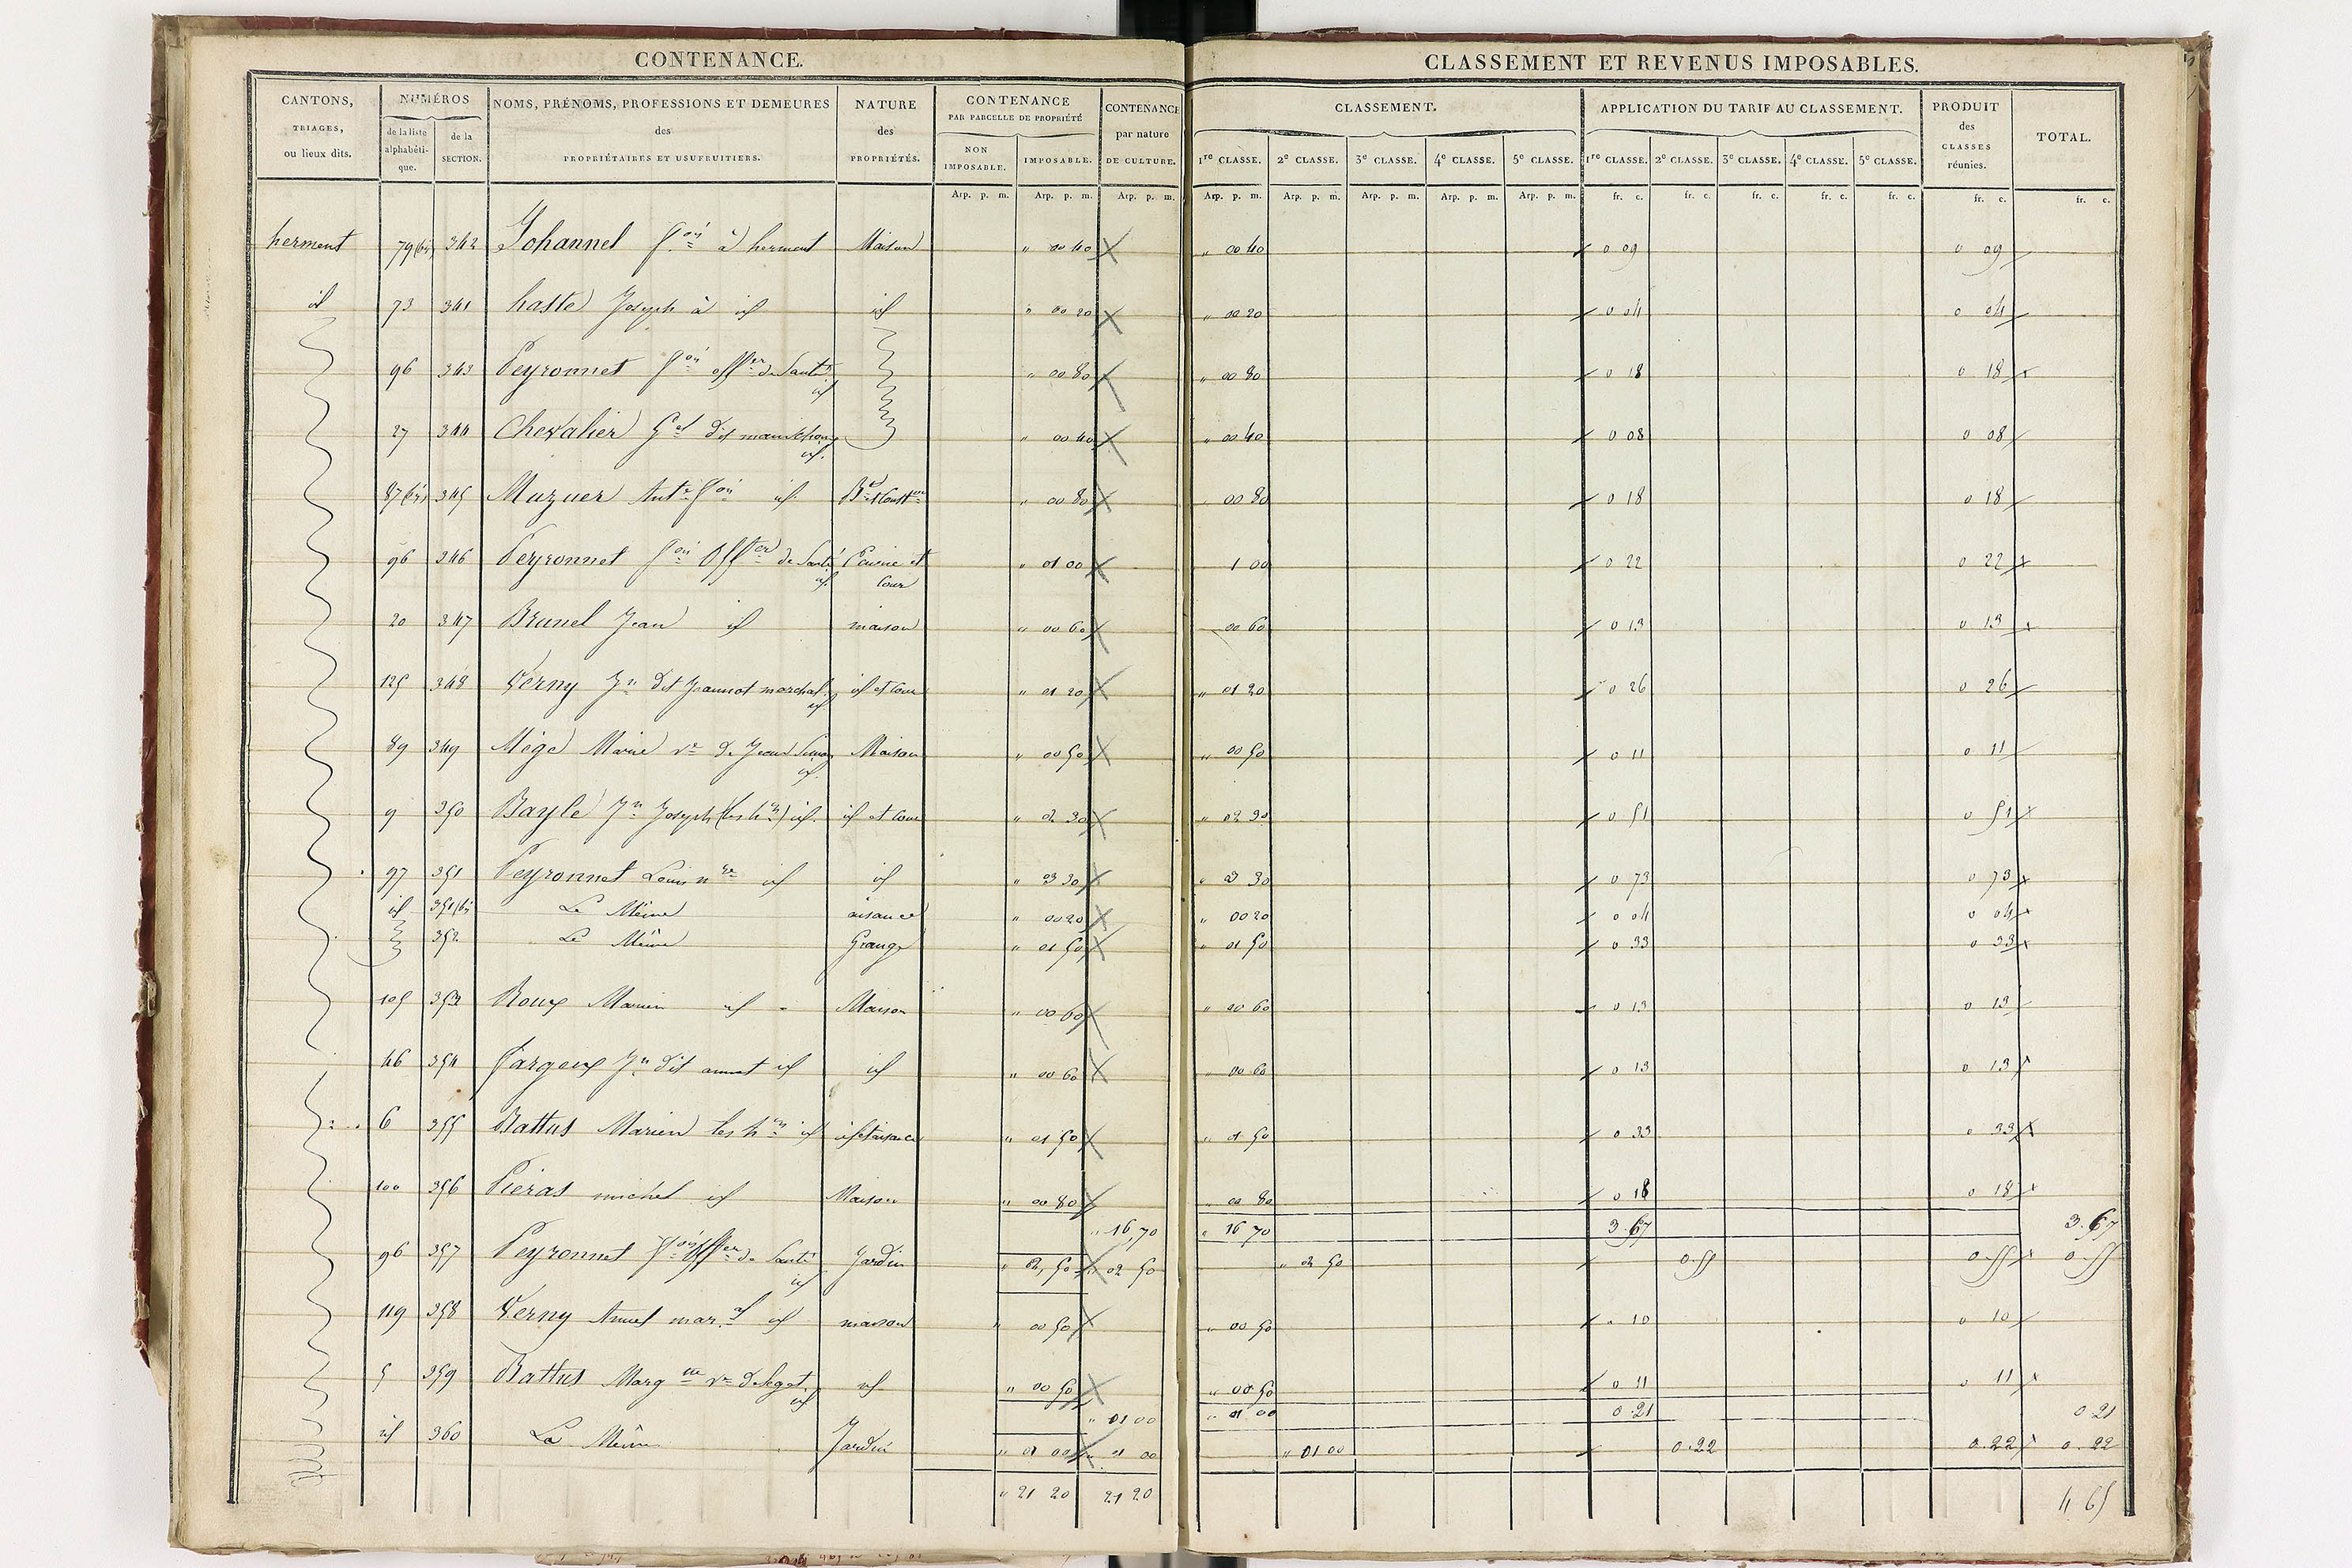 CONTENANCE.
CLASSEMENT ET REVENUS IMPOSABLES.
CANTONS, TRIAGES, ou lieux dits.
NUMÉROS
de la liste alphabéti-que.
de la SECTION.
NOMS, PRÉNOMS, PROFESSIONS ET DEMEURES des PROPRIÉTAIRES ET USUFRUITIERS.
NATURE des PROPRIÉTÉS.
CONTENANCE PAR PARCELLE DE PROPRIÉTÉ
NON IMPOSABLE.
IMPOSABLE.
CONTENANCE par nature DE CULTURE.
CLASSEMENT.
1re CLASSE. 2e CLASSE. 3e CLASSE. 4e CLASSE. 5e CLASSE.
APPLICATION DU TARIF AU CLASSEMENT.
1re CLASSE. 2e CLASSE. 3e CLASSE. 4e CLASSE. 5e CLASSE.
PRODUIT des CLASSES réunies.
TOTAL.
Arp. p. m. Arp. p. m. Arp. p. m. Arp. p. m. Arp. p. m. Arp. p. m. Arp. p. m. Arp. p. m. fr. c. fr. c. fr. c. fr. c. fr. c. fr. c. fr. c.
herment 79 (bis) 342 Johannel fois à herment Maison " 00 40 " 00 40 0 09 0 09
id 73 341 haste Joseph à id id " 00 20 " 00 20 0 04 0 04
96 343 Peyronnet fois offer de Santé id " 00 80 " 00 80 0 18 0 18
27 344 Chevalier dit id. " 00 40 " 00 40 0 08 0 08
87 (bis) 345 Muzuer Ante fois id " 00 80 00 80 0 18 0 18
96 346 Peyronnet fois Offer de Santé id et Cour " 01 00 1 00 0 22 0 22
20 347 Brunel Jean id maison " 00 60 00 60 0 13 0 13
125 348 Verny Jn dit Jeannot marchal id id et cour " 01 20 " 01 20 0 26 0 26
89 349 Mège Marie ve de Jean id Maison " 00 50 " 00 50 0 11 0 11
9 350 Bayle Jn Joseph (les hers) id. id et cour " 02 30 " 02 30 0 51 0 51
97 351 Peyronnet Louis nre id id " 03 30 " 03 30 0 73 0 73
id 351 (bis) Le Même aisance " 00 20 " 00 20 0 04 0 04
352 Le Même Grange " 01 50 " 01 50 0 33 0 33
105 353 Roux Marien id Maison " 00 60 " 00 60 0 13 0 13
46 354 Fargeix Jn dit annet id id " 00 60 " 00 60 0 13 0 13
6 355 Battus Marien les hers id id et aisance " 01 50 " 01 50 0 33 0 33
100 356 Pieras michel id Maison " 00 80 " 00 80 0 18 0 18
" 16,70 " 16 70 3.67 3.67
96 357 Peyronnet fois offer de Santé id Jardin " 02,50 " 02 50 " 02 50 0.55 0.55 0.55
119 358 Verny Annet mar.al id maison " 00 50 " 00 50 " 10 0 10
5 359 Battus Margte ve id id " 00 50 " 00 50 0 11 0 11
" 01 00 " 01 00 0.21 0 21
id 360 La Même Jardin " 01 00 " 01 00 " 01 00 0.22 0.22 0.22
" 21 20 21 20 4 65